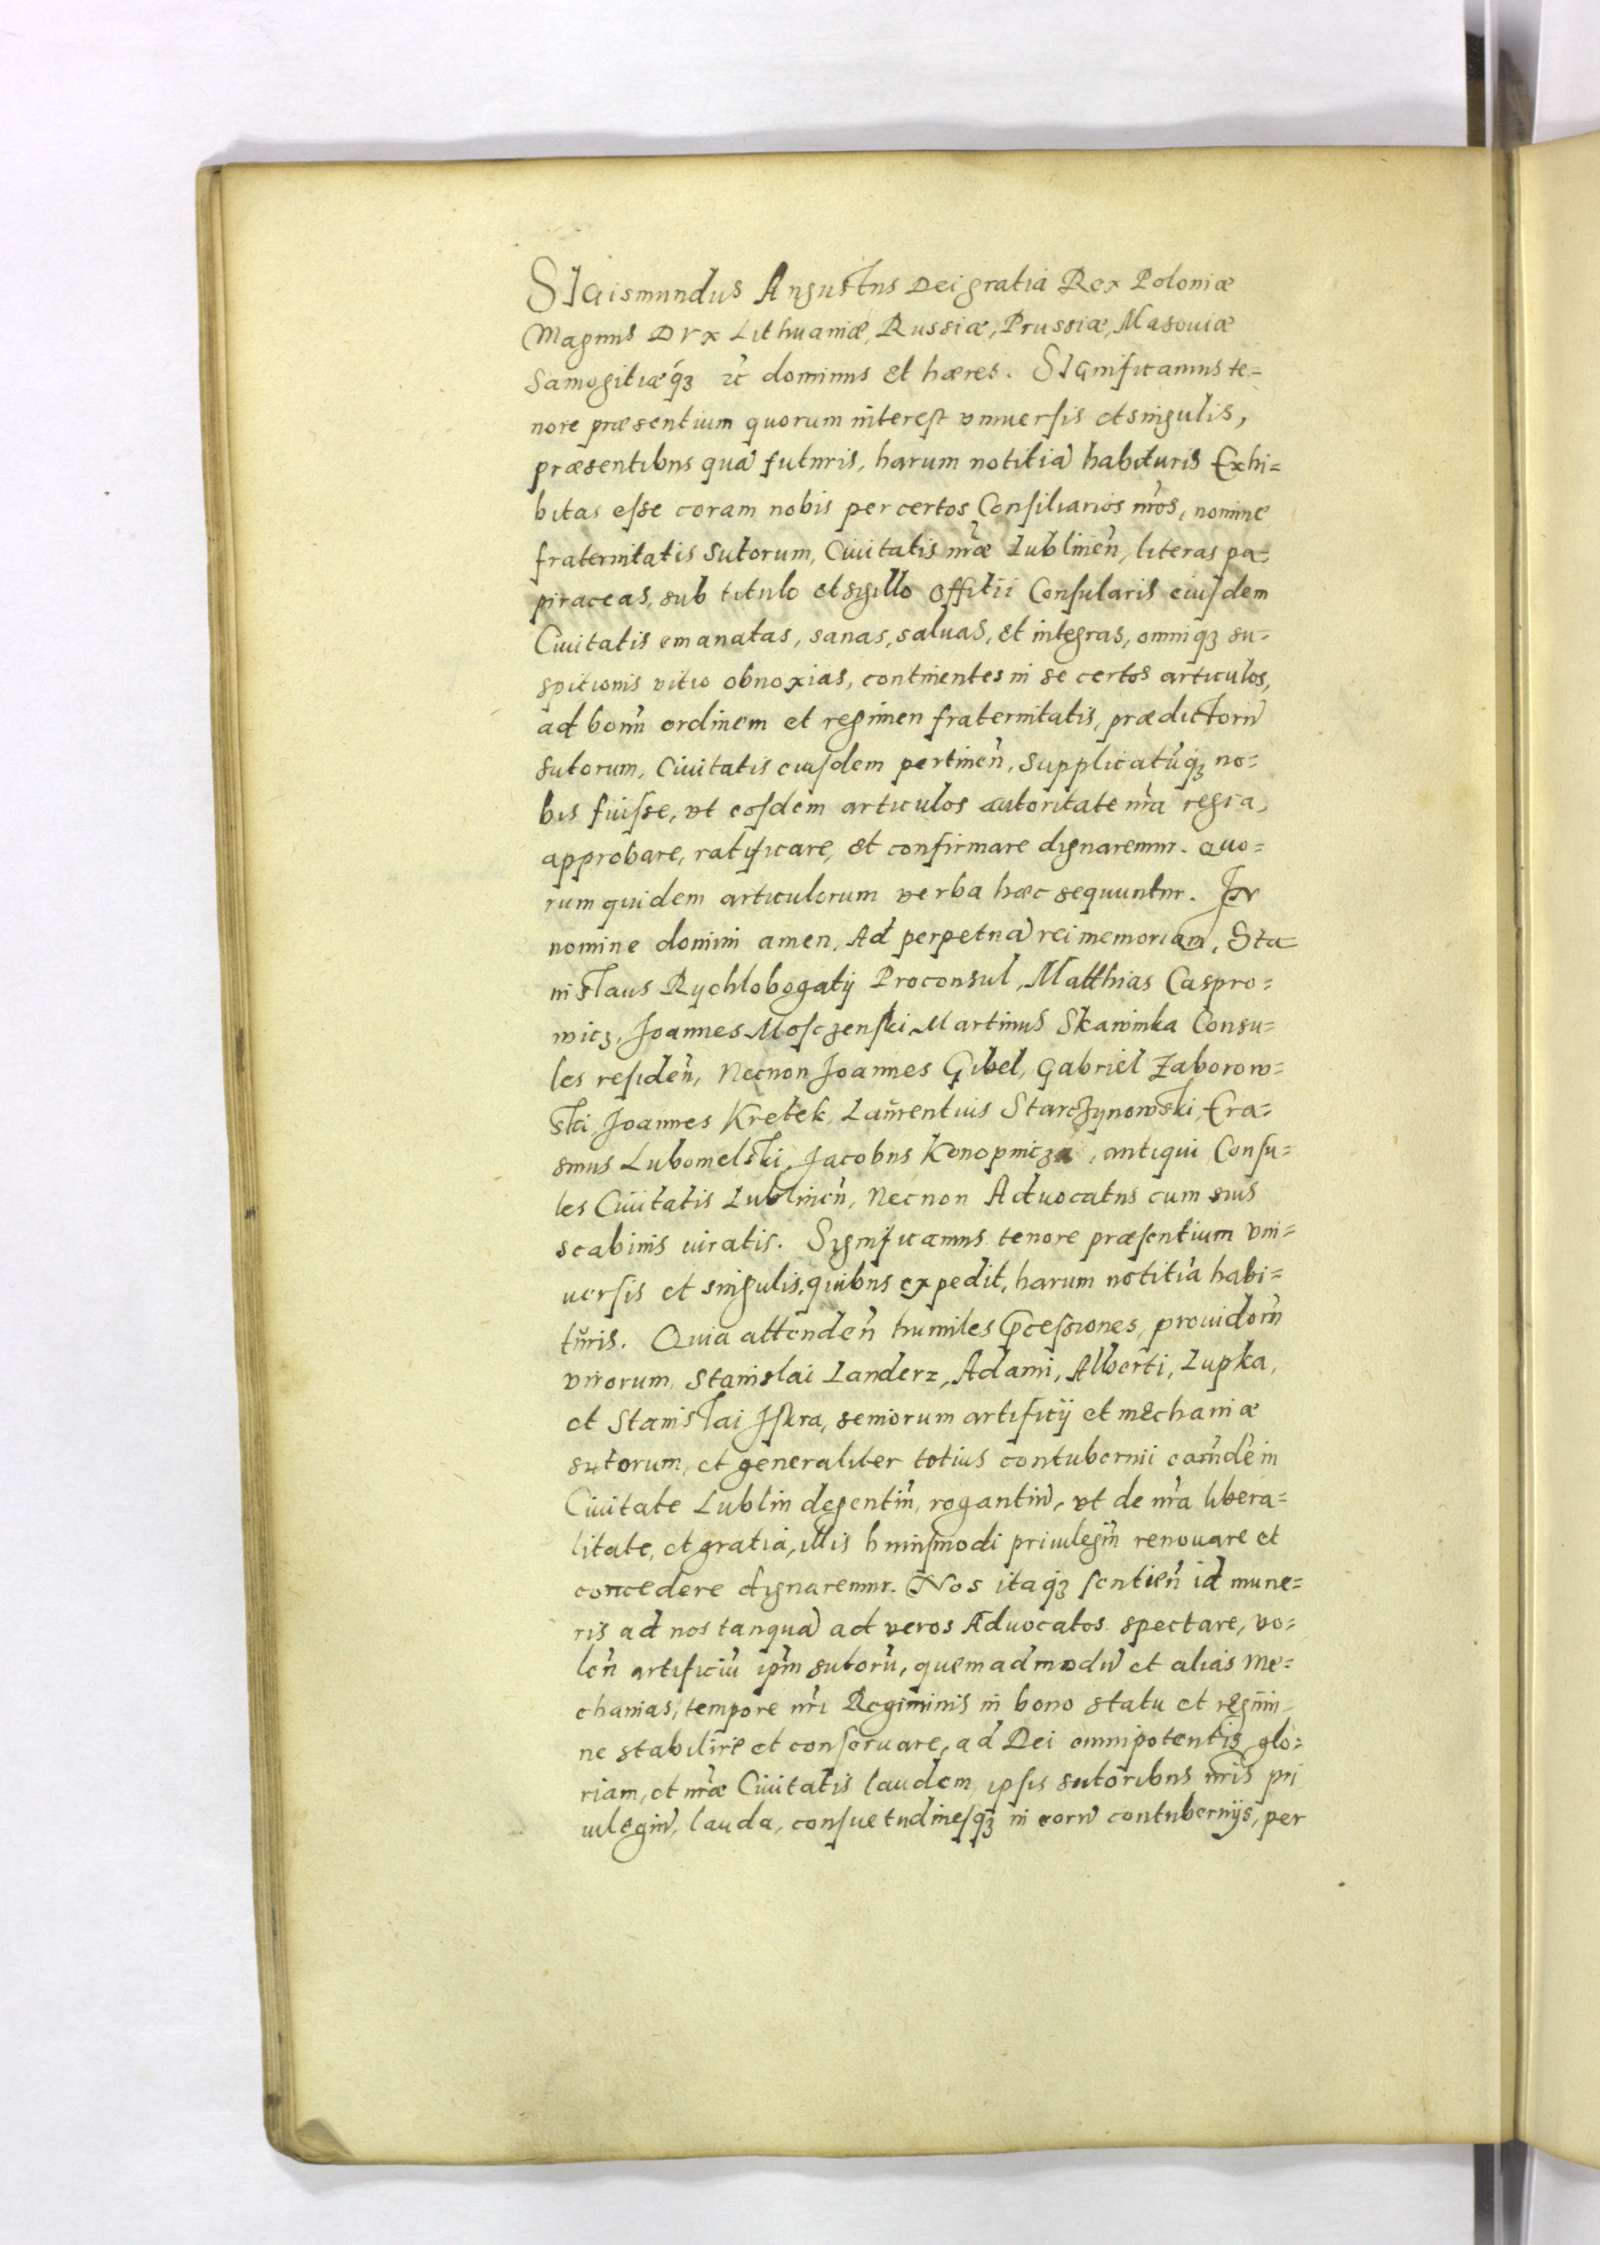 SIGismundus Augustus Dei gratia Rex Poloniæ
Magnus DVx Lithuaniæ, Russiæ, Prussiæ, Masouiæ
Samogitiæq́ꝫ ꝛc̃ dominus et hæres. SIGnificamus te=
nore præsentium quorum interest vniuersis et singulis,
præsentibus quã futuris, harum notitiã habituris Exhi=
bitas esse coram nobis per certos Consiliarios nr̃os, nomine
fraternitatis Sutorum, Ciuitatis nr̃æ Lublineñ, literas pa=
piraceas, sub titulo et sigillo Offitii Consularis eiusdem
Ciuitatis emanatas, sanas, saluas, et integras, omniqꝫ su=
spitionis vitio obnoxias, continentes in se certos articulos,
ad bonũ ordinem et regimen fraternitatis, prædictorũ
sutorum, Ciuitatis eiusdem pertineñ, Supplicatũqꝫ no=
bis fuisse, vt eosdem articulos autoritate nr̃a regia,
approbare, ratificare, et confirmare dignaremur. Quo=
rum quidem articulorum verba hæc sequuntur. IN
nomine domini amen, Ad perpetuã rei memoriam, Sta=
nislaus Rychlobogatÿ Proconsul, Matthias Caspro=
wicz, Joannes Mosczenski, Martinus Skawinka Consu=
les resideñ, Necnon Joannes Gibel, Gabriel Zaborow=
ski, Joannes Kretek, Laurentius Starczynowski, Era=
smus Lubomelski, Jacobus Konopnicza, antiqui Consu=
les Ciuitatis Lublineñ, Necnon Aduocatus cum suis
scabinis iuratis. Significamus tenore præsentium vni=
uersis et singulis, quibus expedit, harum notitiã habi=
turis. Quia attendeñ humiles p̃cessiones, prouidorũ
virorum, Stanislai Landerz, Adami, Alberti, Lupka,
et Stanislai Jskra, seniorum artificij et mEchaniæ
sutorum, et generaliter totius contubernii eorũdẽ in
Ciuitate Lublin degentiũ, rogantiũ, vt de nr̃a libera=
litate, et gratia, illis huiusmodi priuilegiũ renouare et
concedere dignaremur. Nos itaqꝫ sentieñ id mune=
ris ad nos tanquã ad veros Aduocatos spectare, vo=
leñ artificiũ ip̃m sutorũ, quemadmodũ et alias Me=
chanias, tempore nr̃i Regiminis in bono statu et regimi=
ne stabilire et conseruare, ad Dei omnipotentis glo=
riam, et nr̃æ Ciuitatis laudem, ipsis sutoribus nr̃is pri
uilegiũ, lauda, consuetudinesqꝫ in eorũ contubernijs, per